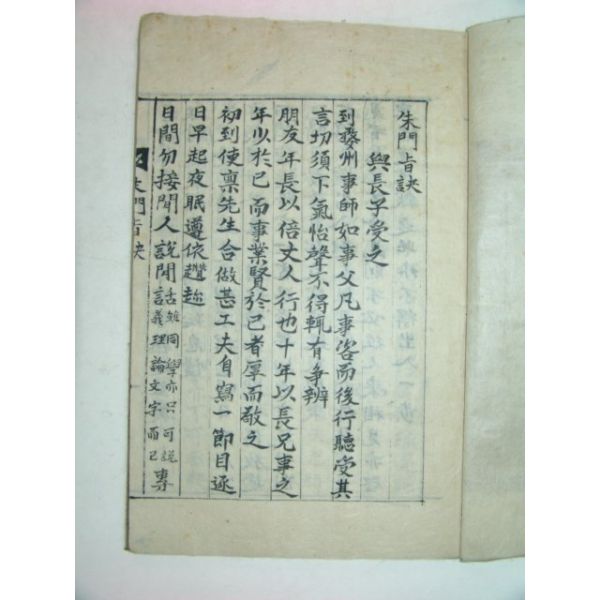 朱門旨訣
與長子受之
到婺州事師如事父凡事咨而後行聽受其
言切須下氣怡聲不得輒有爭辨
朋友年長以倍丈人行也十年以長兄事之
年少於己而事業賢於己者厚而敬之
初到便禀先生合做甚工夫自寫一節目逐
日早起夜眠遵依趲趁
日間勿接閒人說閒話雜同學亦只可說義理論文字而已專
朱門旨訣